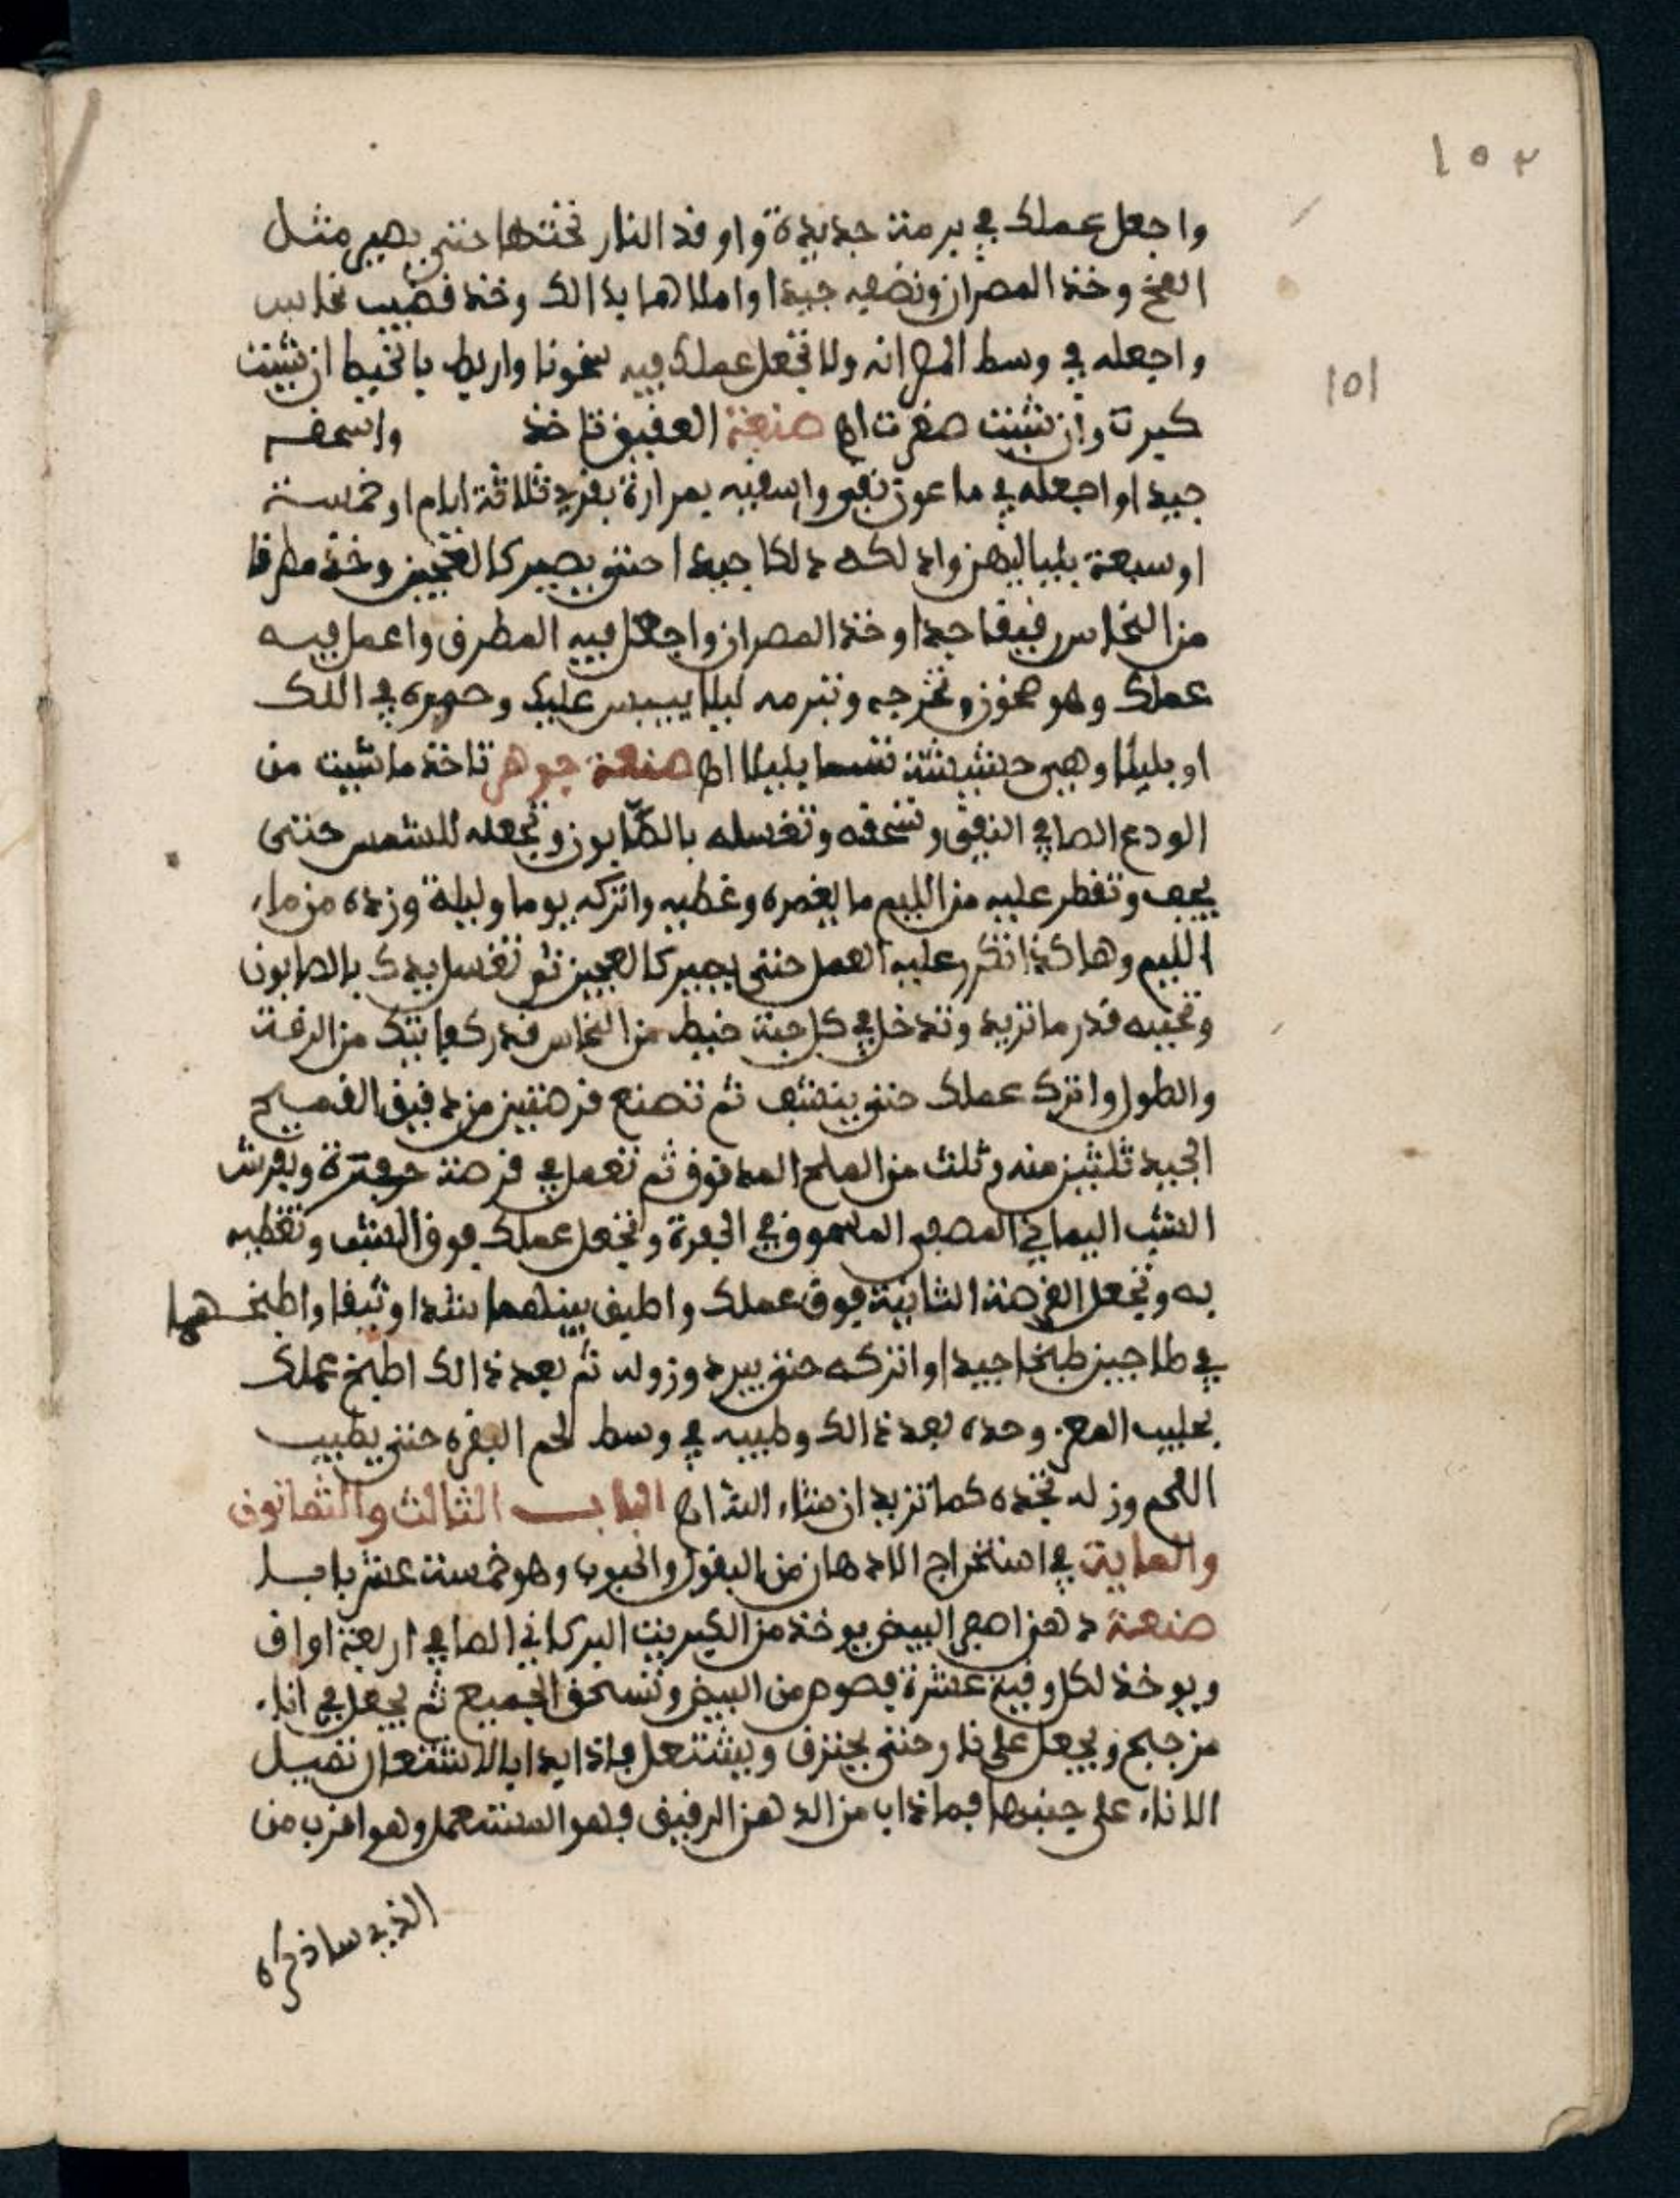 ١٥٢
151
واجعل عملك في برمة جديدة واوقد النار تحتها حتى يصير مثل
المخ وخذ المصران ونضفيه جيدا واملاها بذالك وخذ قضيب نحاس
واجعله في وسط المصرانه ولا تجعل عملك فيه سخونا واربط بالخيط ان شيت
كبرت وان شيت صغرت اه صنعة العقيق تاخذ واسحقه
جيدا واجعله في ماعون نقي واسقيه بمرارة بقري ثلاثة ايام او خمسة
او سبعة بلياليهن وادلكه دلكا جيدا حتى يصير كالعجين وخذ مطرقا
من النحاس رقيقا جدا وخذ المصران واجعل فيه المطرق واعمل فيه
عملك وهو سخون وتخرجه وتبرمه ليلا ييبس عليك وحمره في اللك
او بليلا وهي حشيشة تسما بليلا اه صنعة جوهر تاخذ ما شيت من
الودع الصافي النقي وتسحقه وتغسله بالصابون وتجعله للشمس حتى
يجف وتقطر عليه من الليم ما يغمره وغطيه واتركه يوما وليلة وزده من ماء
الليم وهاكذا تكرر عليه العمل حتى يصير كالعجين ثم تغسل يدك بالصابون
وتحببه قدر ما تريد وتدخل في كل حبة خيط من النحاس قدر كفايتك من الرقة
والطول واترك عملك حتى ينشف ثم تصنع قرصتين من دقيق القميح
الجيد ثلثين منه وثلث من الملح المدقوق ثم تعمل في قرصة حفرة وبفرش
الشب اليماني المصفى المسحوق في الحفرة وتجعل عملك فوق الشب وتغطيه
به وتجعل القرصة الثانية فوق عملك واطبق بينهما شدا وثيقا واطبخهما
في طاجين طبخا جيدا واتركه حتى يبرد وزوله ثم بعد ذالك اطبخ عملك
بحليب المعز وحده بعد ذالك وطيبه في وسط لحم البقره حتى يطيب
اللحم وزله تجده كما تريد ان شاء الله اه الباب الثالث والثمانون
والماية في استخراج الادهان من البقول والحبوب وهو خمسة عشر بابا
صنعة دهن اصفر البيض يوخذ من الكبريت البركاني الصافي اربعة اواق
ويوخذ لكل وقية عشرة فصوص من البيض وتسحق الجميع ثم يجعل في اناء
مزجج ويجعل على نار حتى يحترق ويشتعل فاذا بدا بالاشتعال تميل
الاناء على جنبها فما ذاب من الدهن الرقيق فهو المستعمل وهو اقرب من
الذي ساذكره